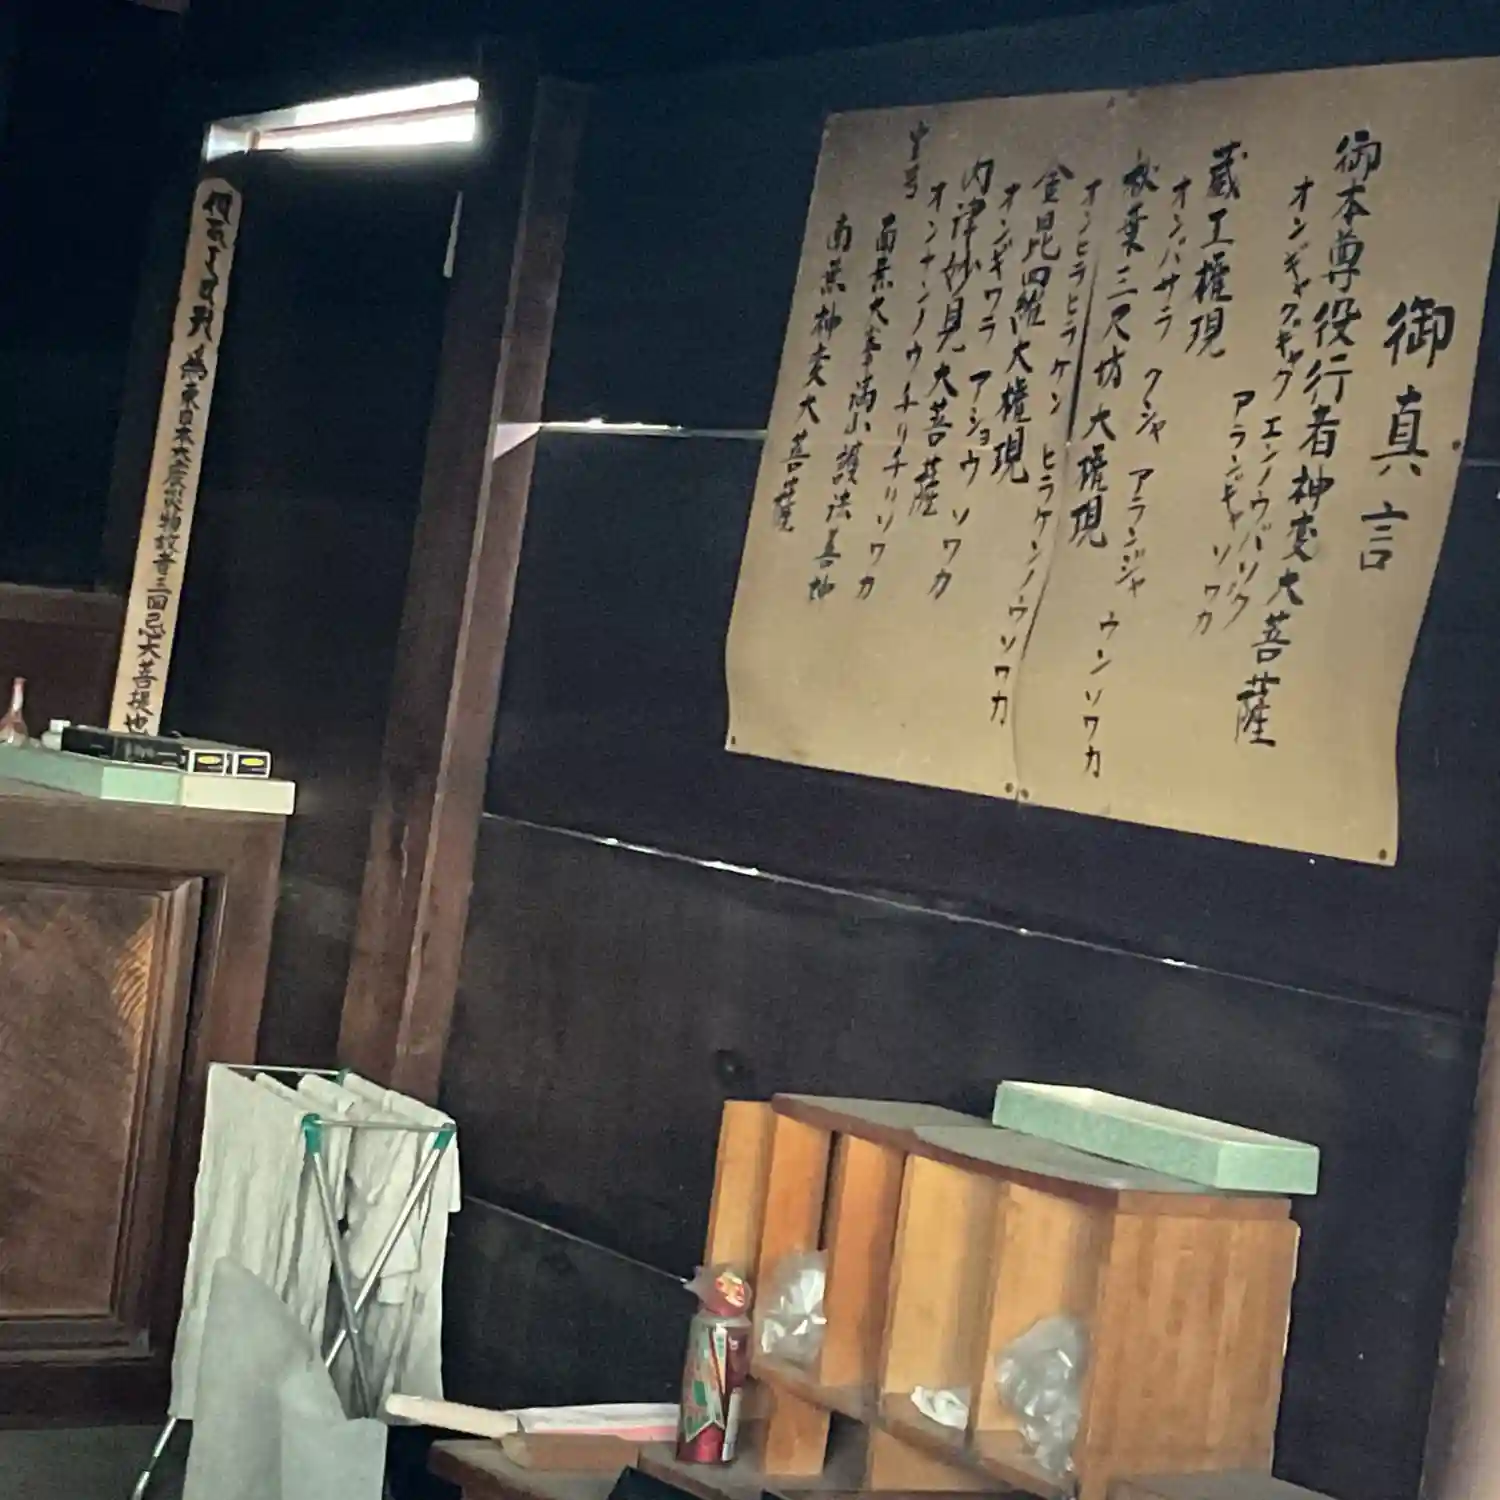 御真言
御本尊役行者神変大菩薩
オンギャクギャク エンノウバソク
アランギャ ソワカ
蔵王権現
オンバサラ クシャ アランジャ ウンソワカ
秋葉三尺坊大権現
オンヒラヒラケン ヒラケンノウソワカ
金毘羅大権現
オンギワラ アショウ ソワカ
内津妙見大菩薩
オンナンノウチリチリソワカ
宝号
南無大峯満山護法善神
南無神変大菩薩
為東日本大震災物故者三回忌大菩提也